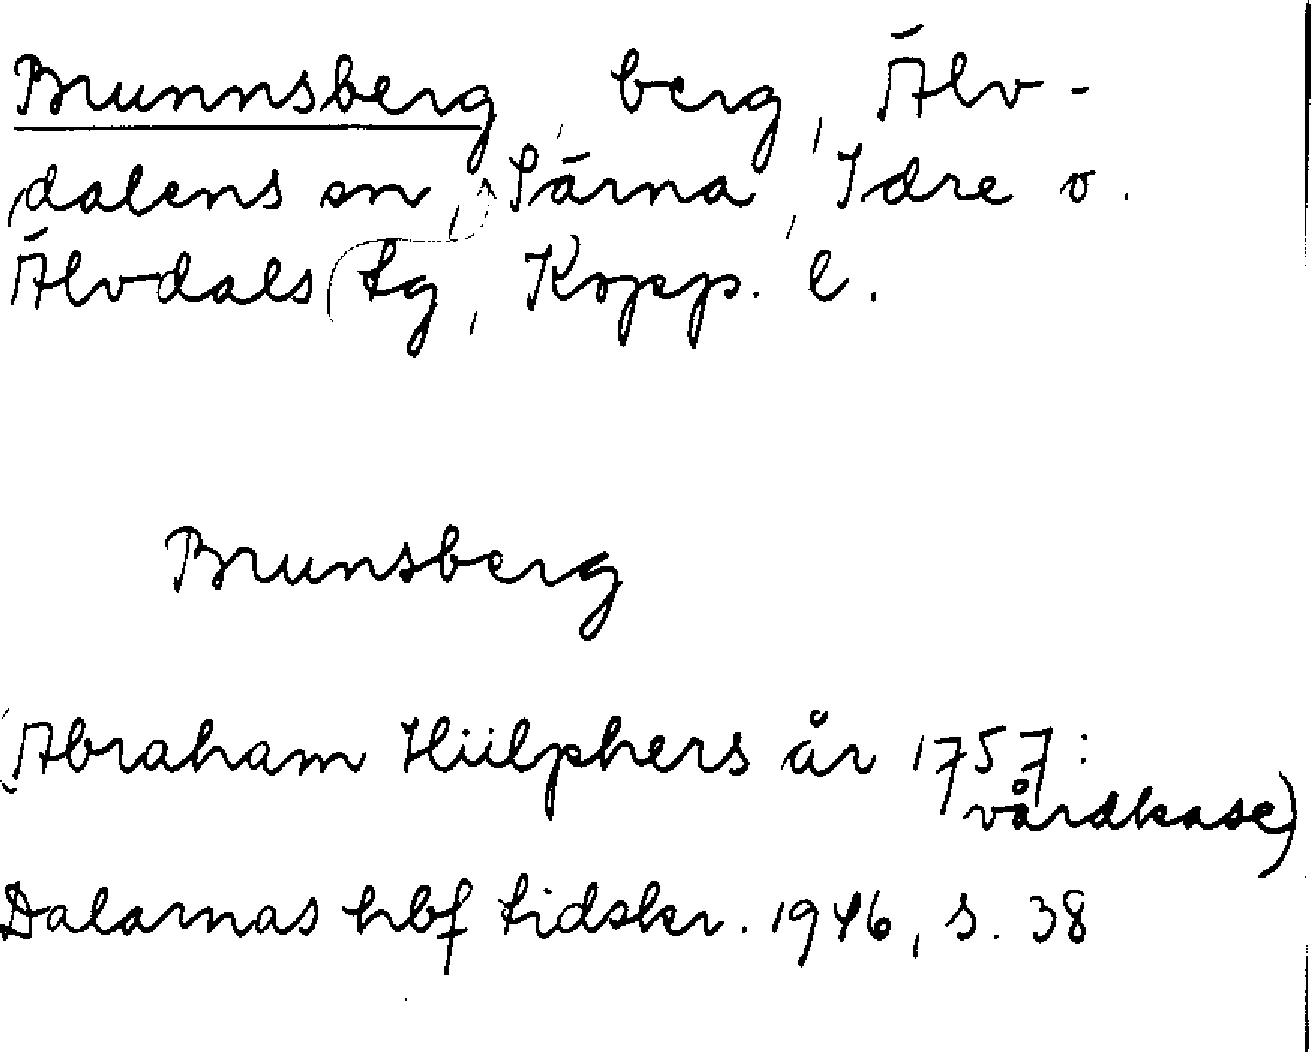 Brunnsberg, berg, Älv-
dalens sn, Särna, Idre o.
Älvdals tg, Kopp. l.
Brunsberg
(Abraham Hülphers år 1757:
vårdkase)
Dalarnas hbf tidskr. 1946, s. 38